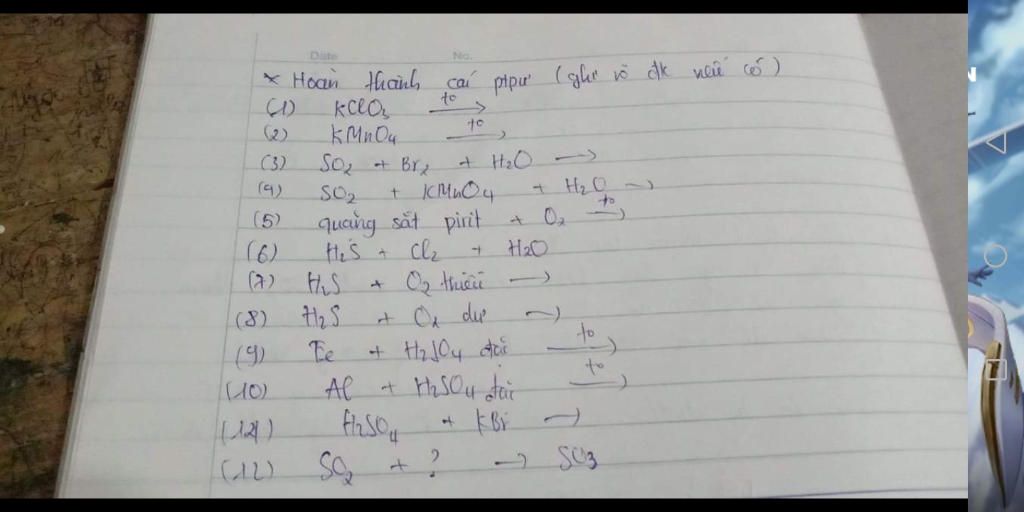 Date No.
* Hoàn thành cái ptpư (ghi rõ đk nếu có)
(1) KClO3 to →
(2) KMnO4 to →
(3) SO2 + Br2 + H2O →
(4) SO2 + KMnO4 + H2O →
(5) quặng sắt pirit + O2 to →
(6) H2S + Cl2 + H2O
(7) H2S + O2 thiếu →
(8) H2S + O2 dư →
(9) Fe + H2SO4 đặc to →
(10) Al + H2SO4 đặc to →
(11) H2SO4 + KBr →
(12) SO2 + ? → SO3
N